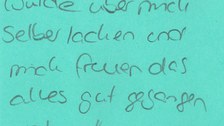 würde über mich
selber lachen und
mich freuen das
alles gut gegangen